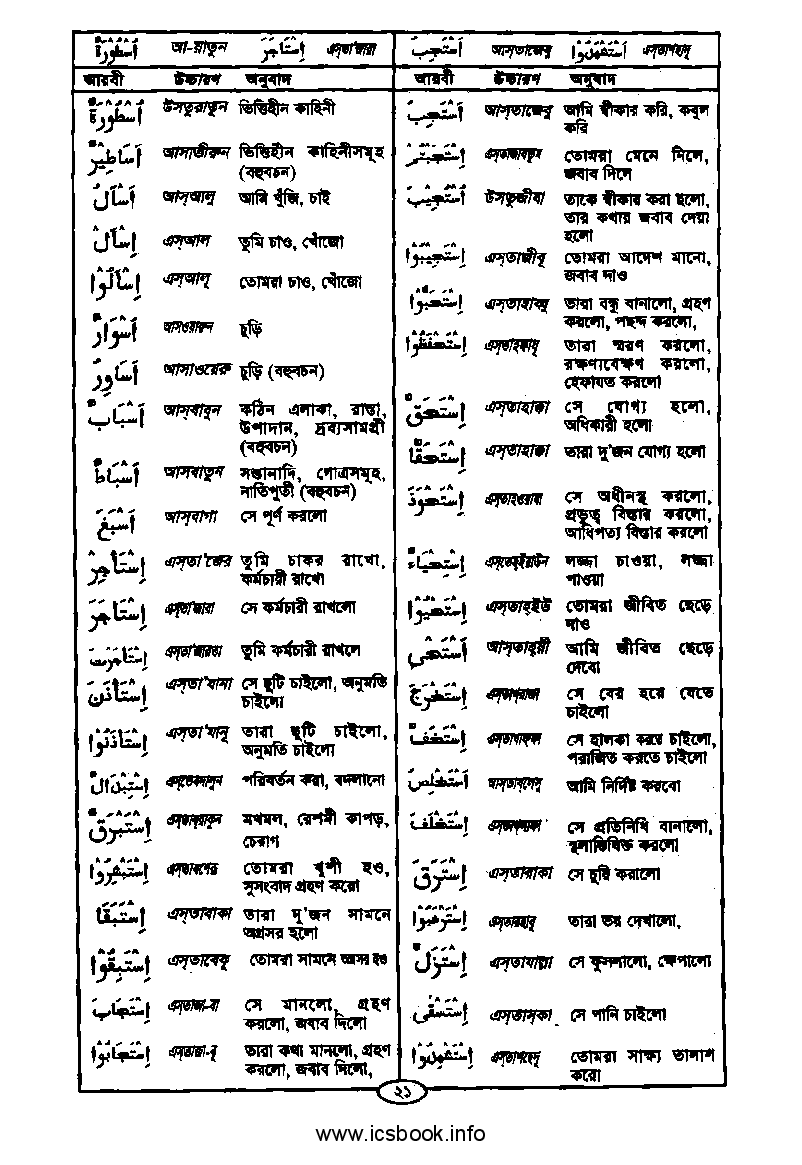 اُسْطُوْرَةٌ আ-য়াতুন اِسْتَأْجَرَ এস্তা'জারা
আরবী উচ্চারণ অনুবাদ
اُسْطُوْرَةٌ উসতুরাতুন ভিত্তিহীন কাহিনী
اَسَاطِيْرُ আসাতীরুন ভিত্তিহীন কাহিনীসমূহ
(বহুবচন)
اَسْاَلُ আস্আলু আমি খুঁজি, চাই
اِسْاَلْ এস্আল তুমি চাও, খোঁজো
اِسْاَلُوْا এস্আলূ তোমরা চাও, খোঁজো
اَسْوَارٌ আসওয়ারুন চুড়ি
اَسَاوِرُ আসাওয়েরু চুড়ি (বহুবচন)
اَسْبَابٌ আস্বাবুন কঠিন এলাকা, রাস্তা,
উপাদান, দ্রব্যসামগ্রী
(বহুবচন)
اَسْبَاطٌ আসবাতুন সন্তানাদি, গোত্রসমূহ,
নাতিপুতী (বহুবচন)
اَسْبَغَ আস্বাগা সে পূর্ণ করলো
اِسْتَأْجِرْ এস্তা'জের তুমি চাকর রাখো,
কর্মচারী রাখো
اِسْتَأْجَرَ এস্তা'জারা সে কর্মচারী রাখলো
اِسْتَأْجَرْتَ এস্তা'জারতা তুমি কর্মচারী রাখলে
اِسْتَأْذَنَ এস্তা'যানা সে ছুটি চাইলো, অনুমতি
চাইলো
اِسْتَأْذَنُوْا এস্তা'যানূ তারা ছুটি চাইলো,
অনুমতি চাইলো
اِسْتِبْدَالٌ এস্তেবদালুন পরিবর্তন করা, বদলানো
اِسْتَبْرَقٌ এস্তাবরাকুন মখমল, রেশমী কাপড়,
চেরাগ
اِسْتَبْشِرُوْا তোমরা খুশী হও,
সুসংবাদ গ্রহণ করো
اِسْتَبَقَا এস্তাবাকা তারা দু'জন সামনে
অগ্রসর হলো
اِسْتَبِقُوْا এস্তাবেকূ তোমরা সামনে অগ্রসর হও
اِسْتَجَابَ এস্তাজা-বা সে মানলো, গ্রহণ
করলো, জবাব দিলো
اِسْتَجَابُوْا এস্তাজা-বূ তারা কথা মানলো, গ্রহণ
করলো, জবাব দিলো,
اَسْتَجِبْ আস্তাজেবু اِسْتَشْهِدُوْا এস্তাশহাদূ
আরবী উচ্চারণ অনুবাদ
اَسْتَجِبْ আস্তাজেবু আমি স্বীকার করি, কবুল
করি
اِسْتَجَبْتُمْ এস্তাজাবতুম তোমরা মেনে নিলে,
জবাব দিলে
اُسْتُجِيْبَ উসতুজীবা তাকে স্বীকার করা হলো,
তার কথায় জবাব দেয়া
হলো
اِسْتَجِيْبُوْا এস্তাজীবূ তোমরা আদেশ মানো,
জবাব দাও
اِسْتَحَبُّوْا এস্তাহাব্বু তারা বন্ধু বানালো, গ্রহণ
করলো, পছন্দ করলো,
اِسْتُحْفِظُوْا তারা স্মরণ করলো,
রক্ষণাবেক্ষণ করলো,
হেফাযত করলো
اِسْتَحَقَّ এস্তাহাক্কা সে যোগ্য হলো,
অধিকারী হলো
اِسْتَحَقَّا এস্তাহাক্কা তারা দু'জন যোগ্য হলো
اِسْتَحْوَذَ এস্তাহওয়াযা সে অধীনস্থ করলো,
প্রভুত্ব বিস্তার করলো,
আধিপত্য বিস্তার করলো
اِسْتِحْيَاءٌ লজ্জা চাওয়া, লজ্জা
পাওয়া
اِسْتَحْيُوْا এস্তাহ্ইউ তোমরা জীবিত ছেড়ে
দাও
اَسْتَحْيِ আস্তাহ্য়ী আমি জীবিত ছেড়ে
দেবো
اِسْتَخْرَجَ এস্তাখরাজা সে বের হয়ে যেতে
চাইলো
اِسْتَخَفَّ এস্তাখাফ্ফা সে হালকা করতে চাইলো,
পরাজিত করতে চাইলো
اَسْتَخْلِصْ আস্তাখলেসু আমি নির্দিষ্ট করবো
اِسْتَخْلَفَ এস্তাখলাফা সে প্রতিনিধি বানালো,
স্থলাভিষিক্ত করলো
اِسْتَرَقَ এস্তারাকা সে চুরি করালো
اِسْتَرْهَبُوْا এস্তারহাবূ তারা ভয় দেখালো,
اِسْتَزَلَّ এস্তাযাল্লা সে ফুসলালো, ক্ষেপালো
اِسْتَسْقٰى এস্তাসকা সে পানি চাইলো
اِسْتَشْهِدُوْا এস্তাশহেদূ তোমরা সাক্ষ্য তালাশ
করো
২১
www.icsbook.info